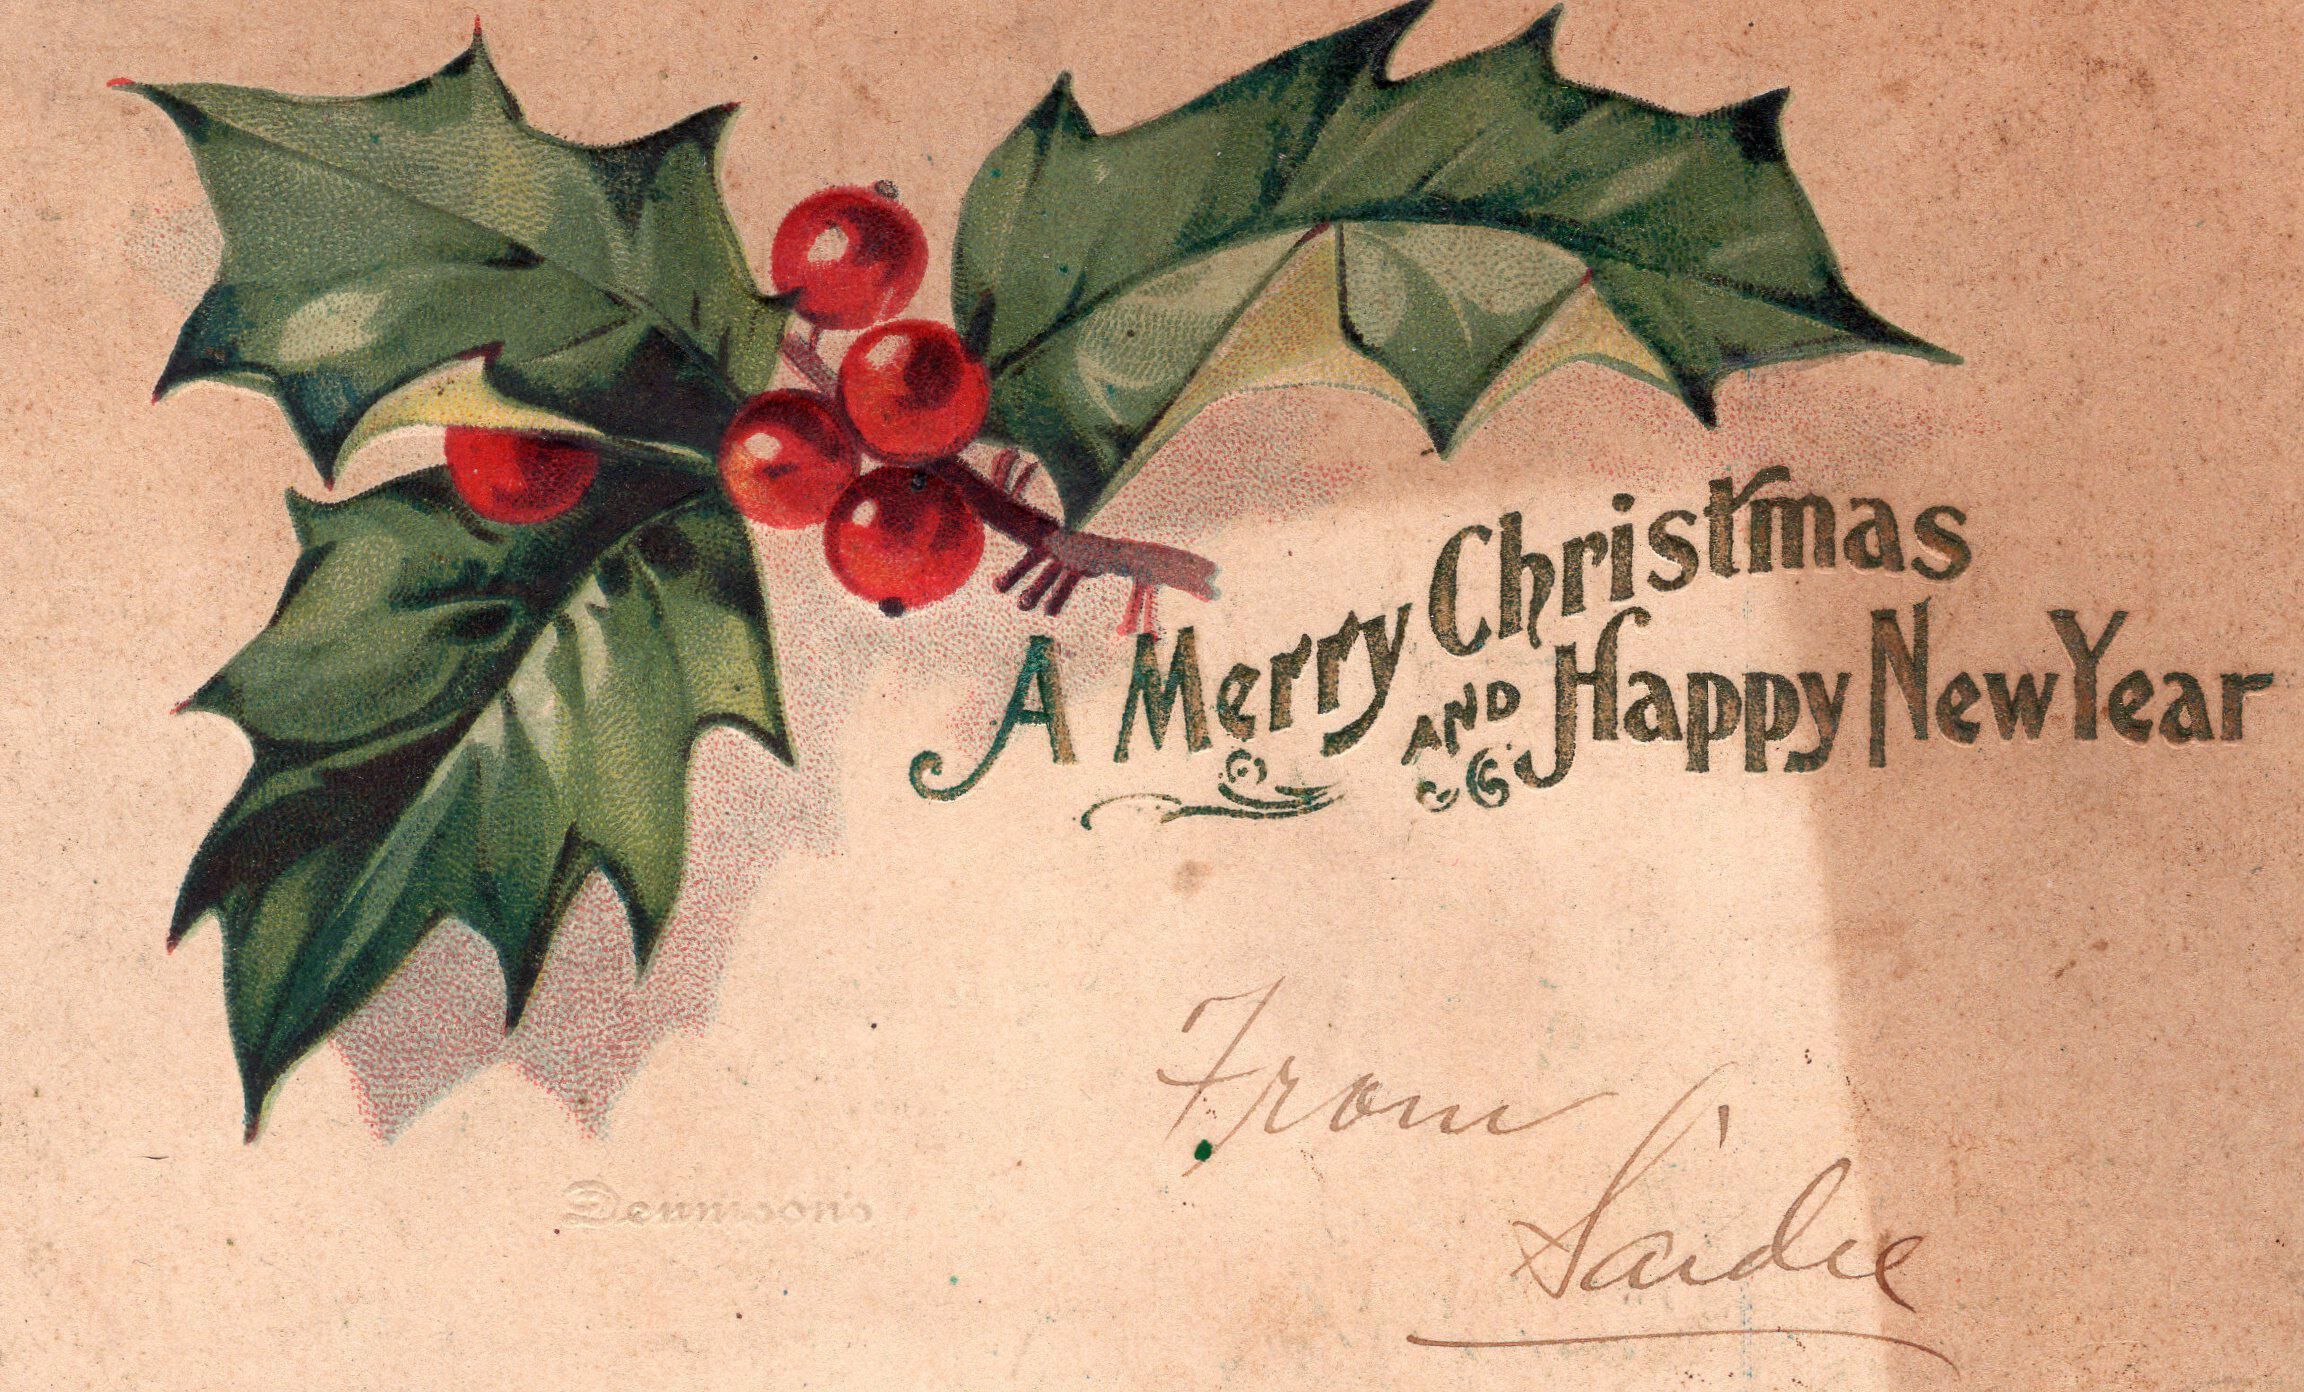 A Merry Christmas
AND Happy New Year
From
Saidie
Dennison's